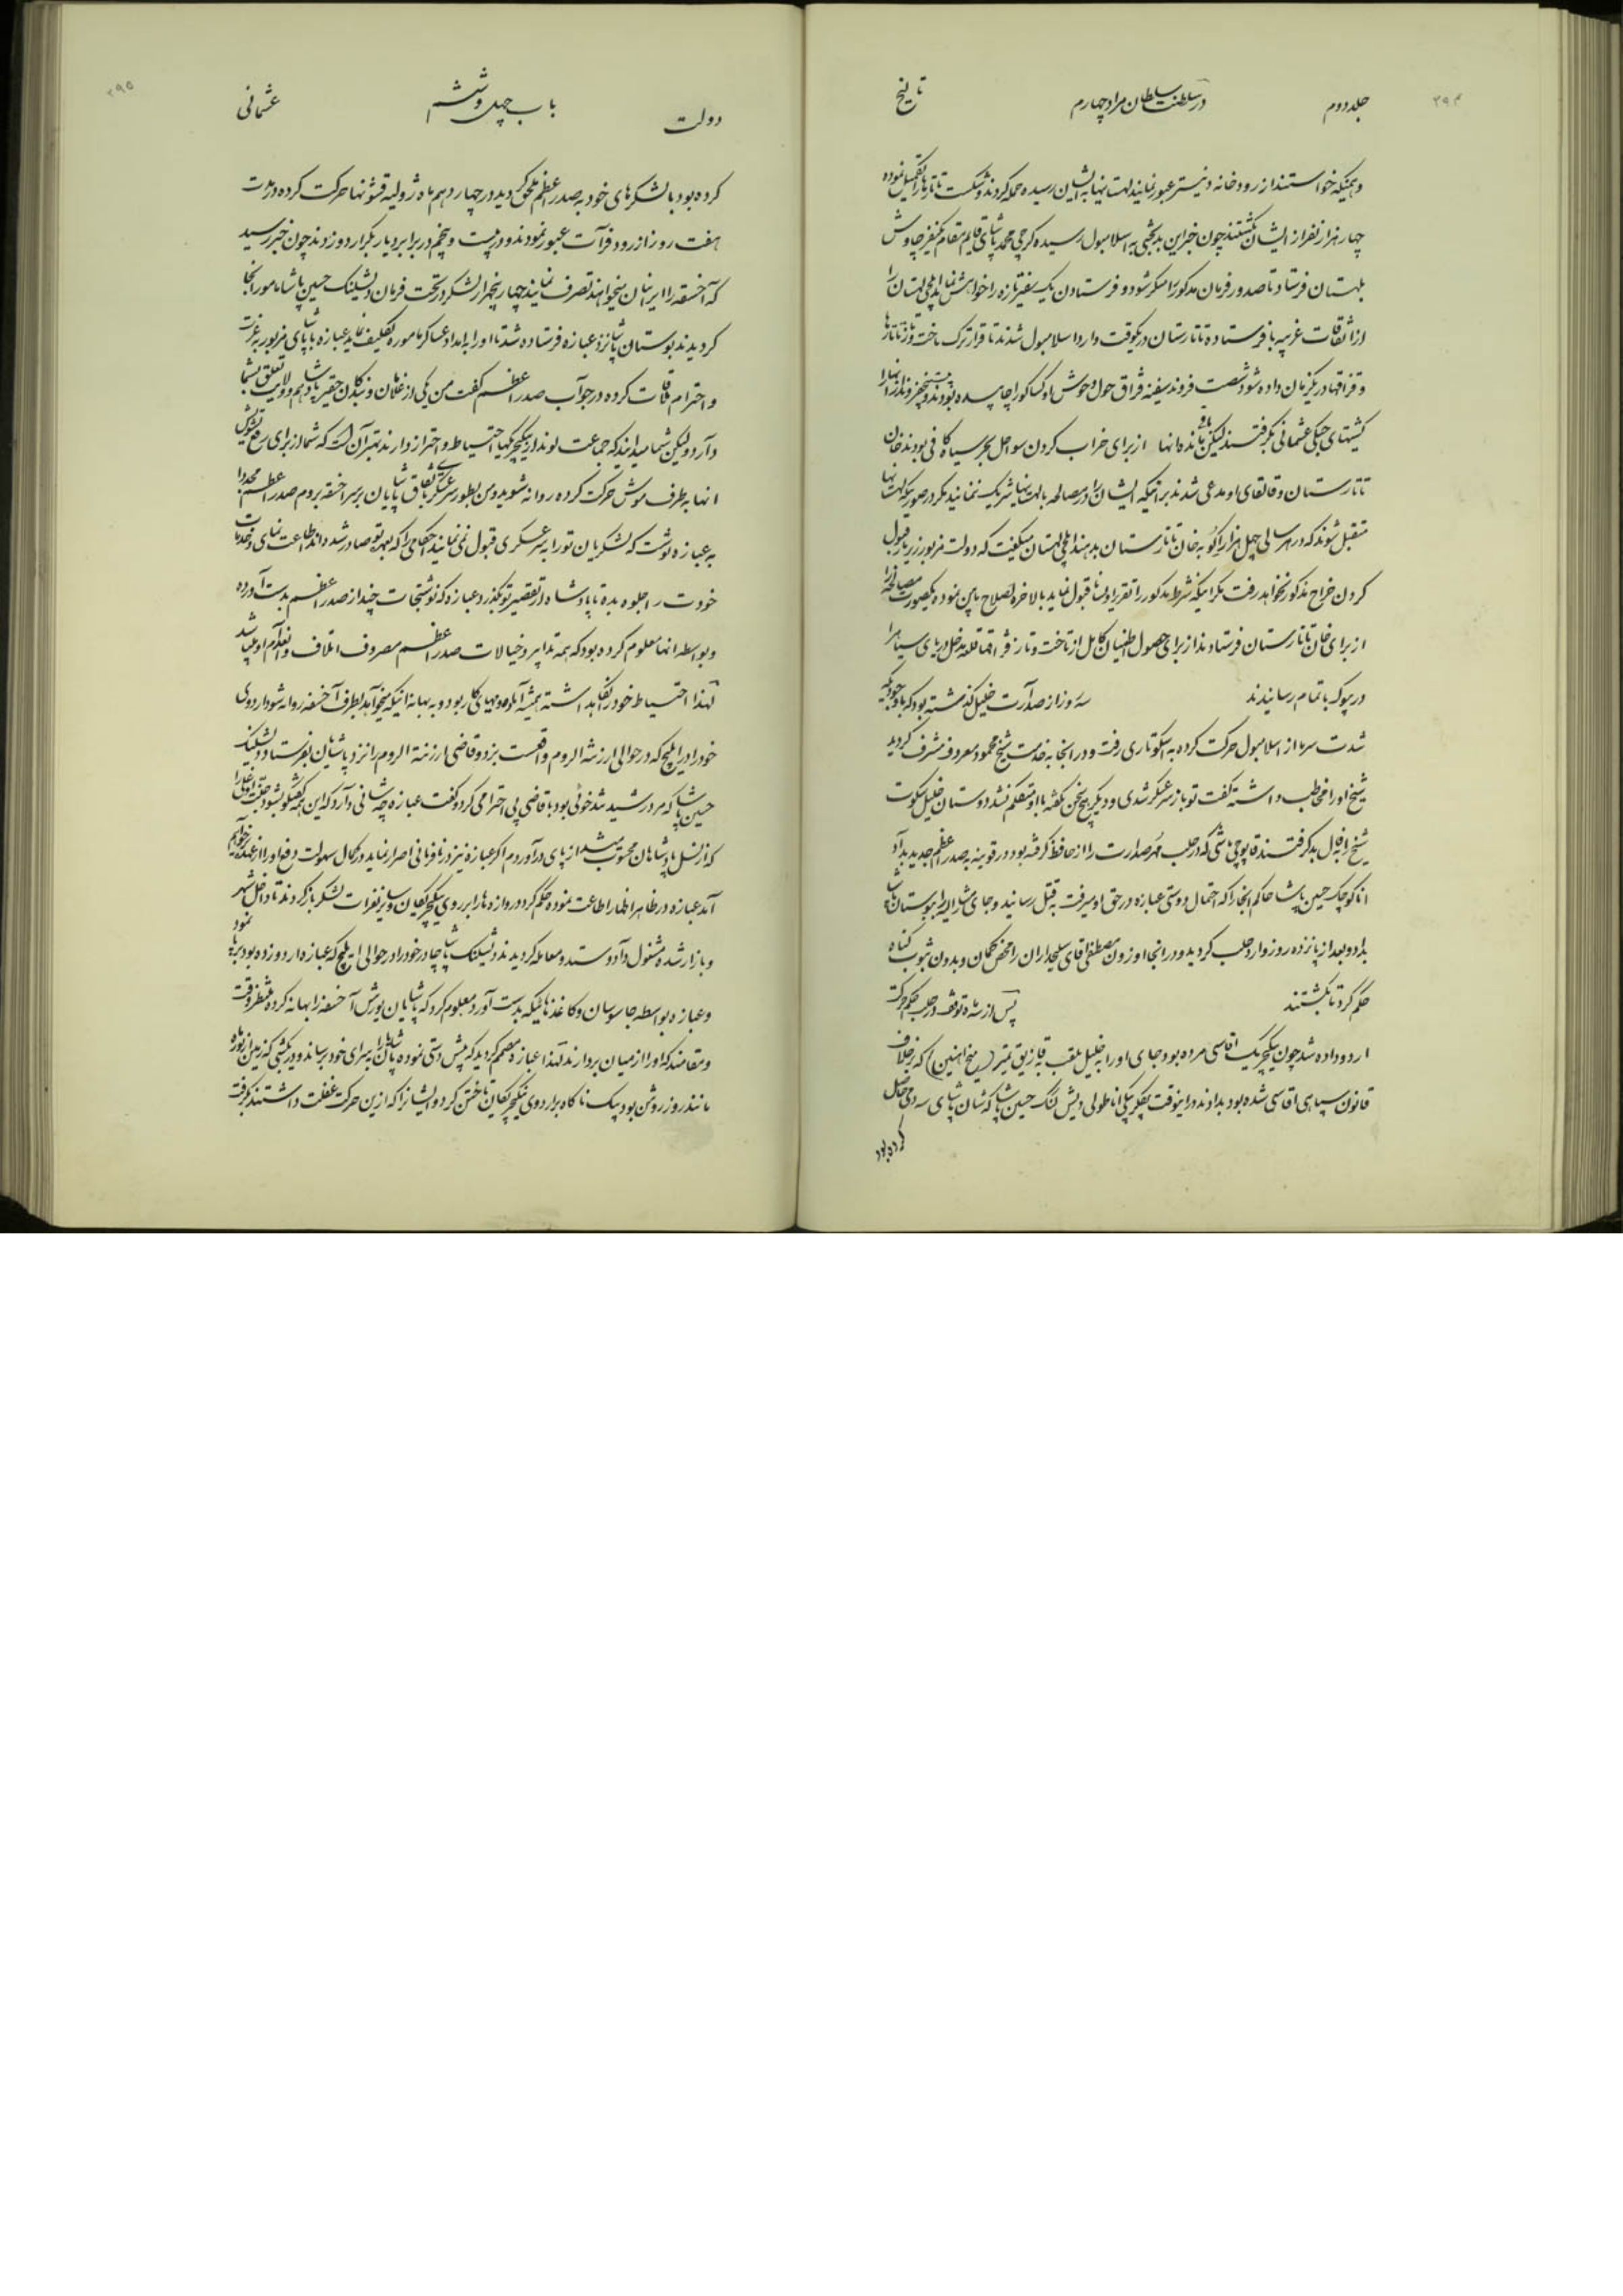 ۲۹۴
جلد دوم در سلطنت سلطان مراد چهارم تاریخ
و همینکه خواستند از رودخانه دنیستر عبور نمایند لهتنیها بایشان رسیده حمله کردند و شکست تاتارها را تکمیل نموده
چهار هزار نفر از ایشان بکشتند چون خبر این بدبختی به اسلامبول رسیده کرجی محمد پاشای قایم مقام یکنفر چاوش
بلهستان فرستاد تا صدور فرمان مذکور را منکر شود و فرستادن یک سفیر تازه را خواهش نماید ایلچی لهستان را
از اتفاقات غریبه با فرستاده تاتارستان در یکوقت وارد اسلامبول شدند تا قرار ترک تاخت و تاز تاتارها
و قزاقها در یکزمان داده شود شصت فروند سفینه قزاق حول و حوش را چاپیده بودند و پنج فروند از آنها را
کشتیهای جنگی عثمانی بگرفتند لیکن باقی مانده آنها از برای خراب کردن سواحل بحر سیاه کافی بودند خان
تاتارستان و قالقای او مدعی شدند بر اینکه ایشان را در مصالحه با لهتنیها شریک ننمایند مگر در صورتیکه لهتنیها
متقبل شوند که در هر سالی چهل هزار اکو به خان تاتارستان بدهند ایلچی لهستان میگفت که دولت مزبور زیر بار قبول
کردن خراج مذکور نخواهد رفت مگر اینکه شرط مذکور را تقریر اولتما قبول نماید بالاخره اصلاح باین نموده یکصورت مصالحه را
از برای خان تاتارستان فرستادند از برای حصول اطمینان کامل از تاخت و تاز قزاقها قلعه مدخل دریای سیاه را
در پیوکه باتمام رسانیدند سه روز از صدارت خلیل گذشته بود که با وجودیکه
شدت سرما از اسلامبول حرکت کرده به اسکوتاری رفت و در آنجا به خدمت شیخ محمود معروف مشرف گردید
شیخ او را مخاطب داشته گفت تو باز سرعسکر شدی و دیگر هیچ سخن نگفته با او متکلم نشد دوستان خلیل سکوت
شیخ را بفال بد گرفتند قاپوچی باشی که از حلب مهر صدارت را از حافظ گرفته بود در قونیه به صدراعظم جدید بداد
اما کوچک حسین پاشا حاکم آنجا را که احتمال دوستی عبازه در حق او میرفت به قتل رسانید و جای مشارالیه را به بوستان پاشا
بداد و بعد از پانزده روز وارد حلب گردید و در آنجا اوزون مصطفی آقای سلیحداران را محض گمان و بدون ثبوت گناه
حکم کرد تا بکشتند پس از سه ماه توقف در حلب حکم حرکت
اردو داده شد چون ینگچریک آقاسی مرده بود و جای او را به خلیل ملقب به قازیق تیمر (میخ آهنین) که برخلاف
قانون سپاهی آقاسی شده بود بدادند در اینوقت بیکلربیکی اناطولی دیشلنگ حسین پاشا که شان پاشای سه دمی حاصل
کرده بود
۲۹۵
دولت باب چهل و ششم عثمانی
کرده بود با لشکرهای خود به صدراعظم ملحق گردید در چهاردهم ماه ژولیه قشونها حرکت کرده در مدت
هفت روز از رود فرات عبور نمودند و در بیست و پنجم در برابر دیاربکر اردو زدند چون خبر رسید
که آخسقه را ایرانیان میخواهند تصرف نمایند چهار پنجهزار لشکر در تحت فرمان دیشلنگ حسین پاشا مامور آنجا
گردیدند بوستان پاشا نزد عبازه فرستاده شد تا او را به امداد عساکر مامور تکلیف نماید عبازه با پاشای مزبور به عزت
و احترام ملاقات کرده در جواب صدراعظم گفت من یکی از غلامان و بندگان حقیر پادشاهم و ولایت تعلق بشما
دارد ولیکن شما میدانید که جماعت لوند از ینگچریها احتیاط و احتراز دارند بهتر آن است که شما از برای رفع تشویش
آنها به طرف موش حرکت کرده روانه شوید و من بطور سرعسکری باتفاق پاشایان بر سر آخسقه بروم صدراعظم مجددا
به عبازه نوشت که لشکریان تو را به سرعسکری قبول نمی نمایند احکامی را که بعهده تو صادر شده اند اطاعت نمای و خدمات
خودت را جلوه بده تا پادشاه از تقصیر تو بگذرد عبازه که نوشتجات چند از صدراعظم بدست آورده
و بواسطه آنها معلوم کرده بود که همه تدابیر و خیالات صدراعظم مصروف اتلاف و انعدام او میباشد
لهذا احتیاط خود را نگاهداشته همیشه آماده و مهیای کار بود و به بهانه اینکه میخواهد بطرف آخسقه روانه شود اردوی
خود را در ایلیج که در حوالی ارزنة الروم واقعست بزد و قاضی ارزنة الروم را نزد پاشایان بفرستاد دیشلنگ
حسین پاشا که مرد رشید تند خوئی بود با قاضی بی احترامی کرد و گفت عبازه چه شانی دارد که این همه گفتگو بشود
که از نسل پادشاهان محسوب میشد از پای درآوردم اگر عبازه نیز در نافرمانی اصرار نماید در کمال سهولت دفع او را از عهده خواهیم
آمد عبازه در ظاهر اظهار اطاعت نموده حکم کرد دروازه ها را بر روی ینگچریکیان و سایر نفرات لشکر باز کردند تا داخل شهر
و بازار شده مشغول داد و ستد و معامله گردیدند دیشلنگ پاشا چادر خود را در حوالی ایلیج که عبازه اردو زده بود برپا نمود
و عبازه بواسطه جاسوسان و کاغذهائیکه بدست آورد معلوم کرد که پاشایان یورش آخسقه را بهانه کرده منتظر وقت
و مقامند که او را از میان بردارند لهذا عبازه مصمم گردید که پیش دستی نموده پاشایان را بسزای خود برساند و در یکشبی که زمین از نور ماه
مانند روز روشن بود بیک ناگاه بر اردوی ینگچریکیان تاختن کرد و ایشانرا که ازین حرکت غفلت داشتند بگرفت